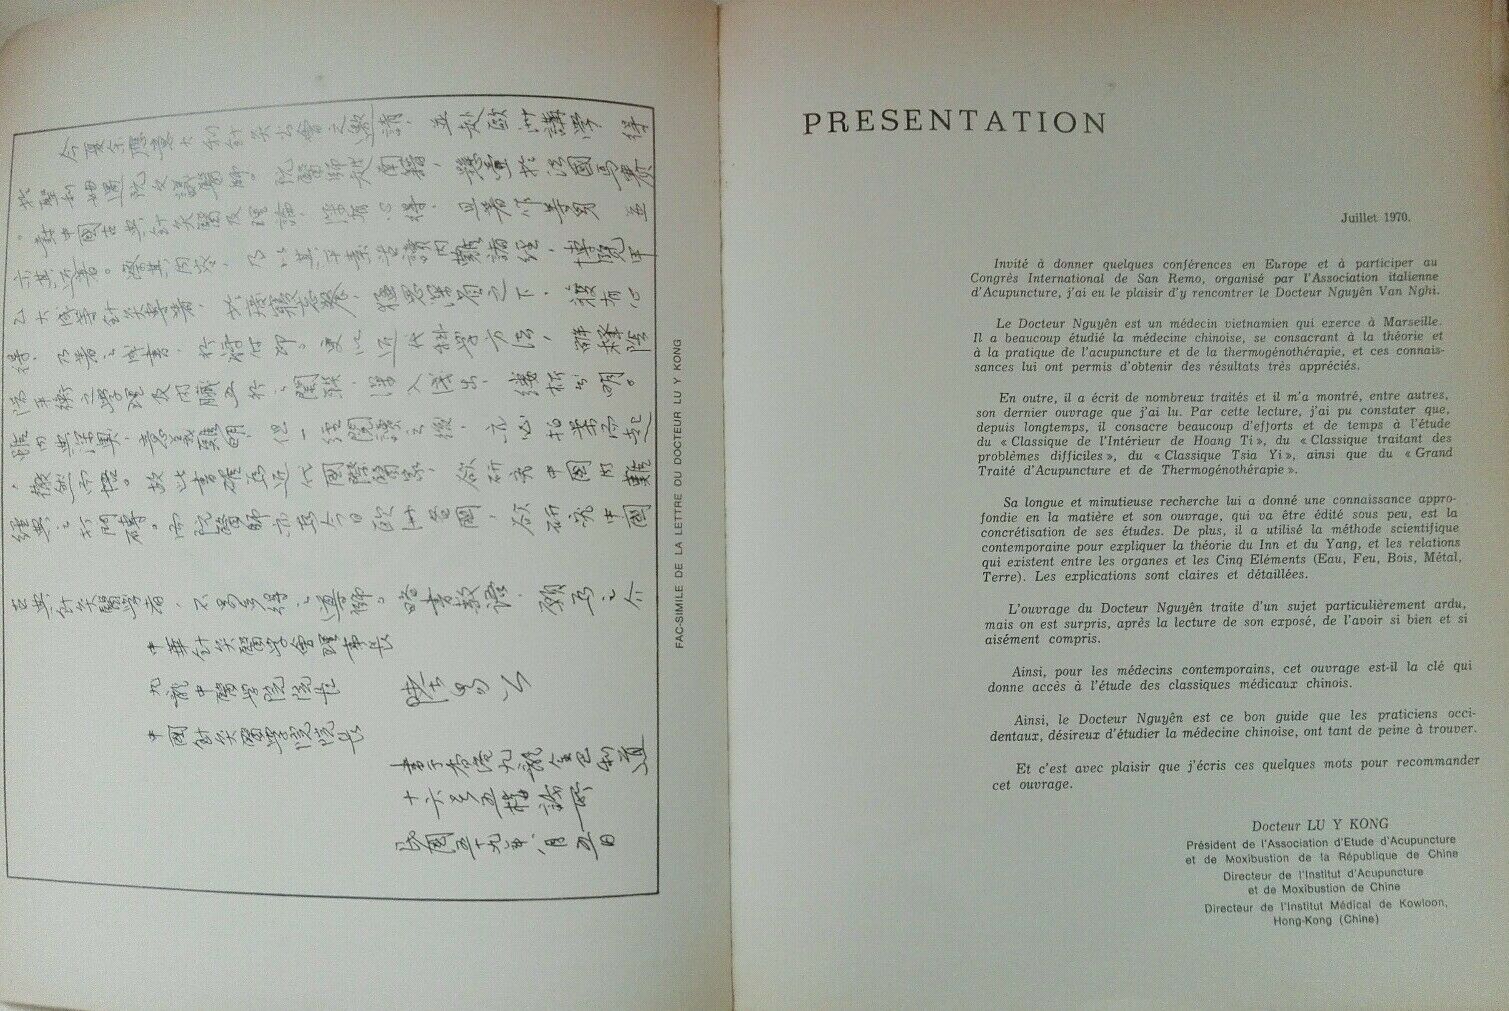 今夏余應意大利針灸學會之邀請,並赴歐洲講學 得
遇阮文議醫師。阮醫師越南籍,懸壺於法國馬賽
,對中國古典針灸醫及理論,深有心得,且著作等身 並
示其近著。其內容,乃以其平素讀內難諸經,博覽甲
乙大成等針灸專書,之下,有心
得,乃著之成書,行將付印。更以近代科學方法,解釋陰
陽平衡之學理及內臟五行之關聯,深入淺出,縷析分明。
雖內典深奧,意義難明,但一經閱讀之後,亦必拍案而起
,徹然而悟。故此書確為近代國際醫家,欲研究中國內難
經典之敲門磚。而阮醫師亦為今日歐洲各國,欲研究中國
古典針灸醫學者,不易多得之導師。略書數語,願為之介
中華針灸醫學會理事長
九龍中醫學院院長
中國針灸醫學院院長
陸易公
書于香港九龍金巴利道
十六號五楼
民國五十九年八月五日
FAC-SIMILE DE LA LETTRE DU DOCTEUR LU Y KONG
PRESENTATION
Juillet 1970.
Invité à donner quelques conférences en Europe et à participer au
Congrès International de San Remo, organisé par l'Association italienne
d'Acupuncture, j'ai eu le plaisir d'y rencontrer le Docteur Nguyên Van Nghi.
Le Docteur Nguyên est un médecin vietnamien qui exerce à Marseille.
Il a beaucoup étudié la médecine chinoise, se consacrant à la théorie et
à la pratique de l'acupuncture et de la thermogénothérapie, et ces connais-
sances lui ont permis d'obtenir des résultats très appréciés.
En outre, il a écrit de nombreux traités et il m'a montré, entre autres,
son dernier ouvrage que j'ai lu. Par cette lecture, j'ai pu constater que,
depuis longtemps, il consacre beaucoup d'efforts et de temps à l'étude
du « Classique de l'Intérieur de Hoang Ti », du « Classique traitant des
problèmes difficiles », du « Classique Tsia Yi », ainsi que du « Grand
Traité d'Acupuncture et de Thermogénothérapie ».
Sa longue et minutieuse recherche lui a donné une connaissance appro-
fondie en la matière et son ouvrage, qui va être édité sous peu, est la
concrétisation de ses études. De plus, il a utilisé la méthode scientifique
contemporaine pour expliquer la théorie du Inn et du Yang, et les relations
qui existent entre les organes et les Cinq Eléments (Eau, Feu, Bois, Métal,
Terre). Les explications sont claires et détaillées.
L'ouvrage du Docteur Nguyên traite d'un sujet particulièrement ardu,
mais on est surpris, après la lecture de son exposé, de l'avoir si bien et si
aisément compris.
Ainsi, pour les médecins contemporains, cet ouvrage est-il la clé qui
donne accès à l'étude des classiques médicaux chinois.
Ainsi, le Docteur Nguyên est ce bon guide que les praticiens occi-
dentaux, désireux d'étudier la médecine chinoise, ont tant de peine à trouver.
Et c'est avec plaisir que j'écris ces quelques mots pour recommander
cet ouvrage.
Docteur LU Y KONG
Président de l'Association d'Etude d'Acupuncture
et de Moxibustion de la République de Chine
Directeur de l'Institut d'Acupuncture
et de Moxibustion de Chine
Directeur de l'Institut Médical de Kowloon,
Hong-Kong (Chine)